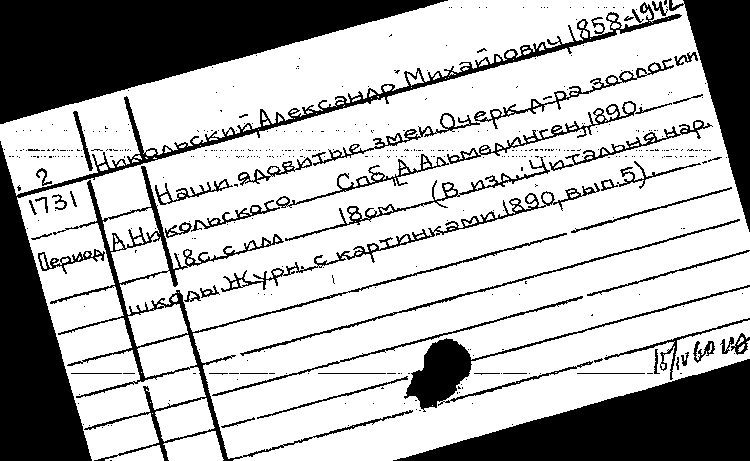 Никольский, Александр Михайлович 1858-1942
2
1731
Период.
Наши ядовитые змеи. Очерк д-ра зоологии
А. Никольского. Спб, А. Альмединген, 1890.
18с. с илл. 18см. (В изд.: Читальня нар.
школы. Журн. с картинками. 1890, вып. 5).
15/IV 60